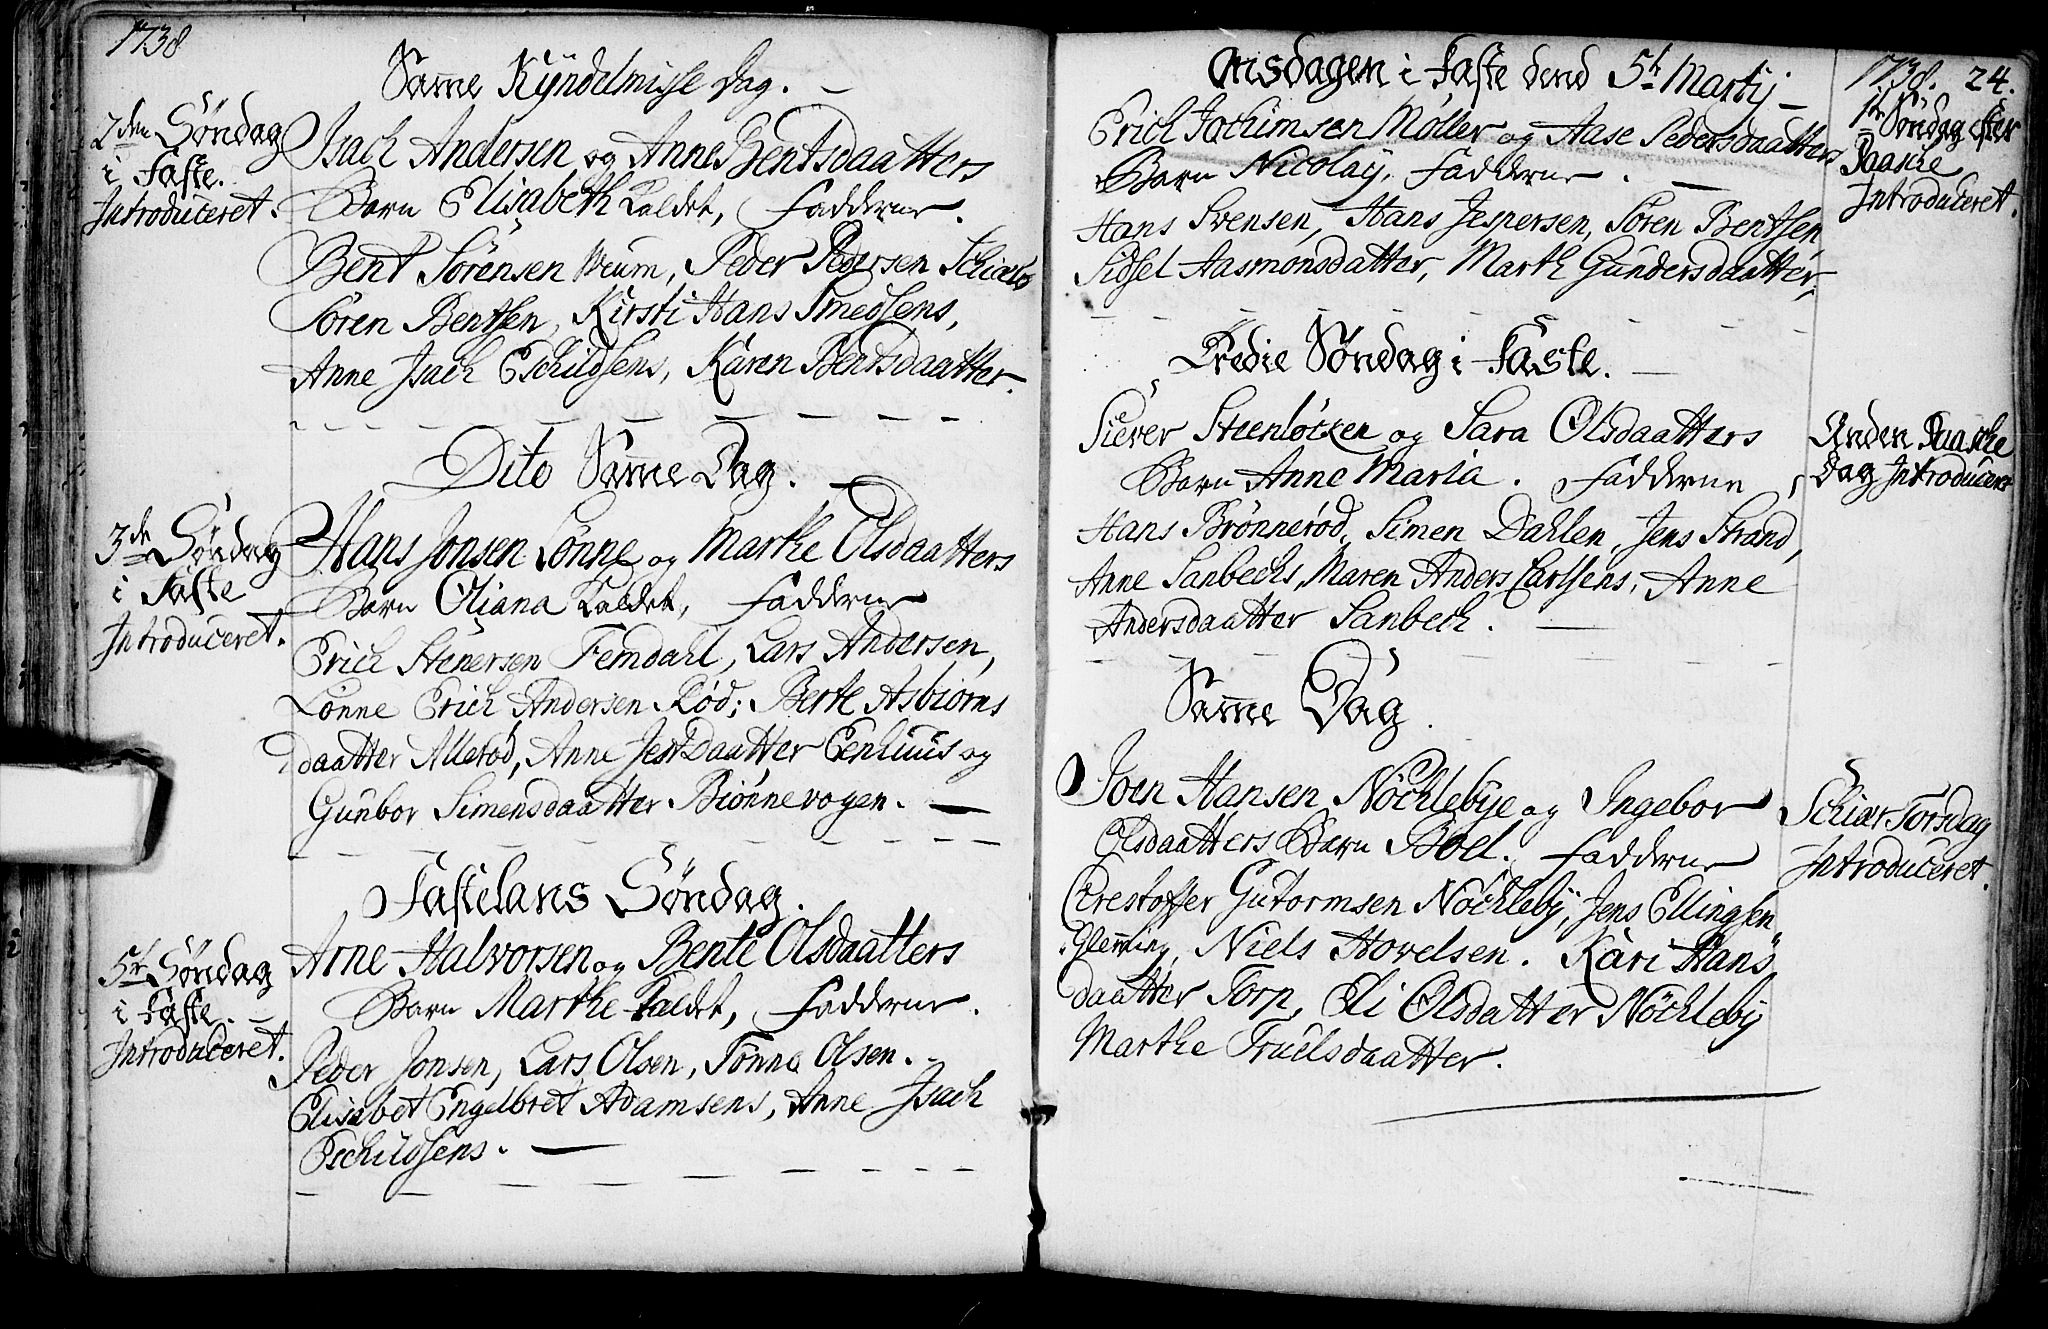 1738
Samme Kÿndelmisse Dag. —
2den Søndag
i Faste.
Introduceret.
Isach Andersen og Anne Bentsdaatters
Barn Elisabeth Kaldet, Fadderne.
Bent Sörensen Veum, Peder Pedersen
Sören Bentsen, Kirsti Hans Smedsens,
Anne Isach Eschildsens, Karen Bentsdaatter.
Dito Samme Dag. —
3de Søndag
i Faste
Introduceret.
Hans Jonsen Lönne og Marthe Olsdaatters
Barn Oliana Kaldet, Fadderne
Erich Stenersen Femdahl, Lars Andersen,
Lönne Erich Andersen Röd; Berte Asbiörns
daatter Alleröd, Anne Jensdaatter Eenhuus og
Gunbor Simensdaatter Biönnevogen. —
Fastelans Søndag.
5te Søndag
i Faste. —
Introduceret.
Arne Halvorsen og Bente Olsdaatters
Barn Marthe Kaldet, Fadderne.
Peder Jonsen, Lars Olsen, Tönne Olsen.
Elisabet Engelbret Adamsens, Anne Isach
Eschildsens. —
Onsdagen i Faste dend 5te Martij —
1738. 24.
1te Søndag efter
Paaske
Introduceret.
Erich Jochimsen Möller og Aase Pedersdaatters
Barn Nicolaÿ. Fadderne. —
Hans Svensen, Hans Jespersen, Sören Bentsen
Sidsel Aasmonsdatter, Marth Gundersdaatter,
Tredie Søndag i Faste. —
Anden Paaske
Dag Introduceret
Siever Steenlöcken og Sara Olsdaatters
Barn Anne Maria. Fadderne
Hans Brönneröd, Simen Dahlen, Jens Strand,
Anne Sanbechs, Maren Anders Carlsens, Anne
Andersdaatter Sanbech. —
Samme Dag.
Schiær Torsdag
Introduceret.
Joen Hansen Nöchlebÿe og Ingebor
Olsdaatters Barn Boel. Fadderne
Crestoffer Gutormsen Nöchlebÿ, Jens Ellingsen
Glemming, Niels Hovelsen. Kari Hans
daatter Torp, Eli Olsdatter Nöchlebÿ
Marthe Truelsdaatter.